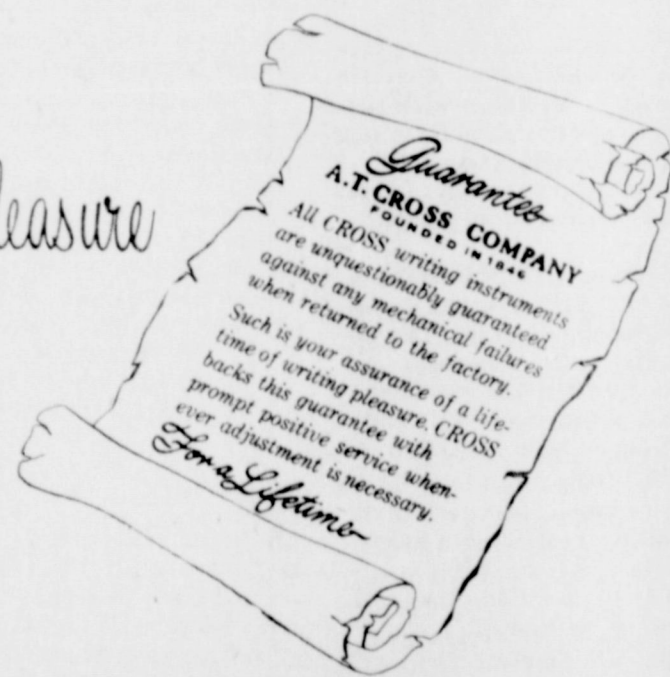 Guarantee
A.T. CROSS COMPANY
FOUNDED IN 1846
All CROSS writing instruments
are unquestionably guaranteed
against any mechanical failures
when returned to the factory.
Such is your assurance of a life-
time of writing pleasure. CROSS
backs this guarantee with
prompt positive service when-
ever adjustment is necessary.
For a Lifetime